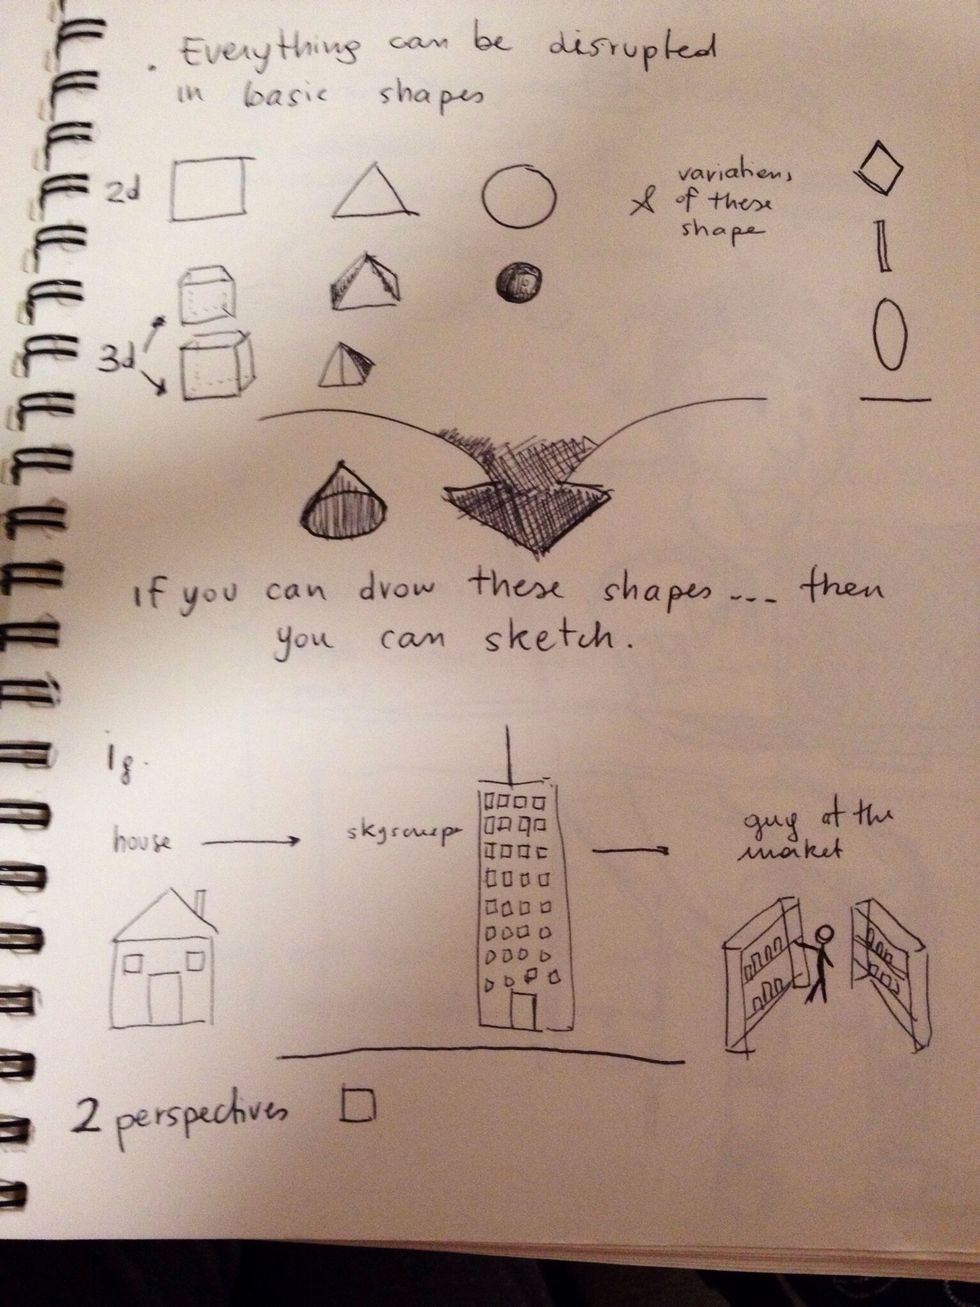 . Everything can be disrupted
in basic shapes
2d
& variations
of these
shape
3d
if you can drow these shapes --- then
you can sketch.
house
guy at the
market
2 perspectives